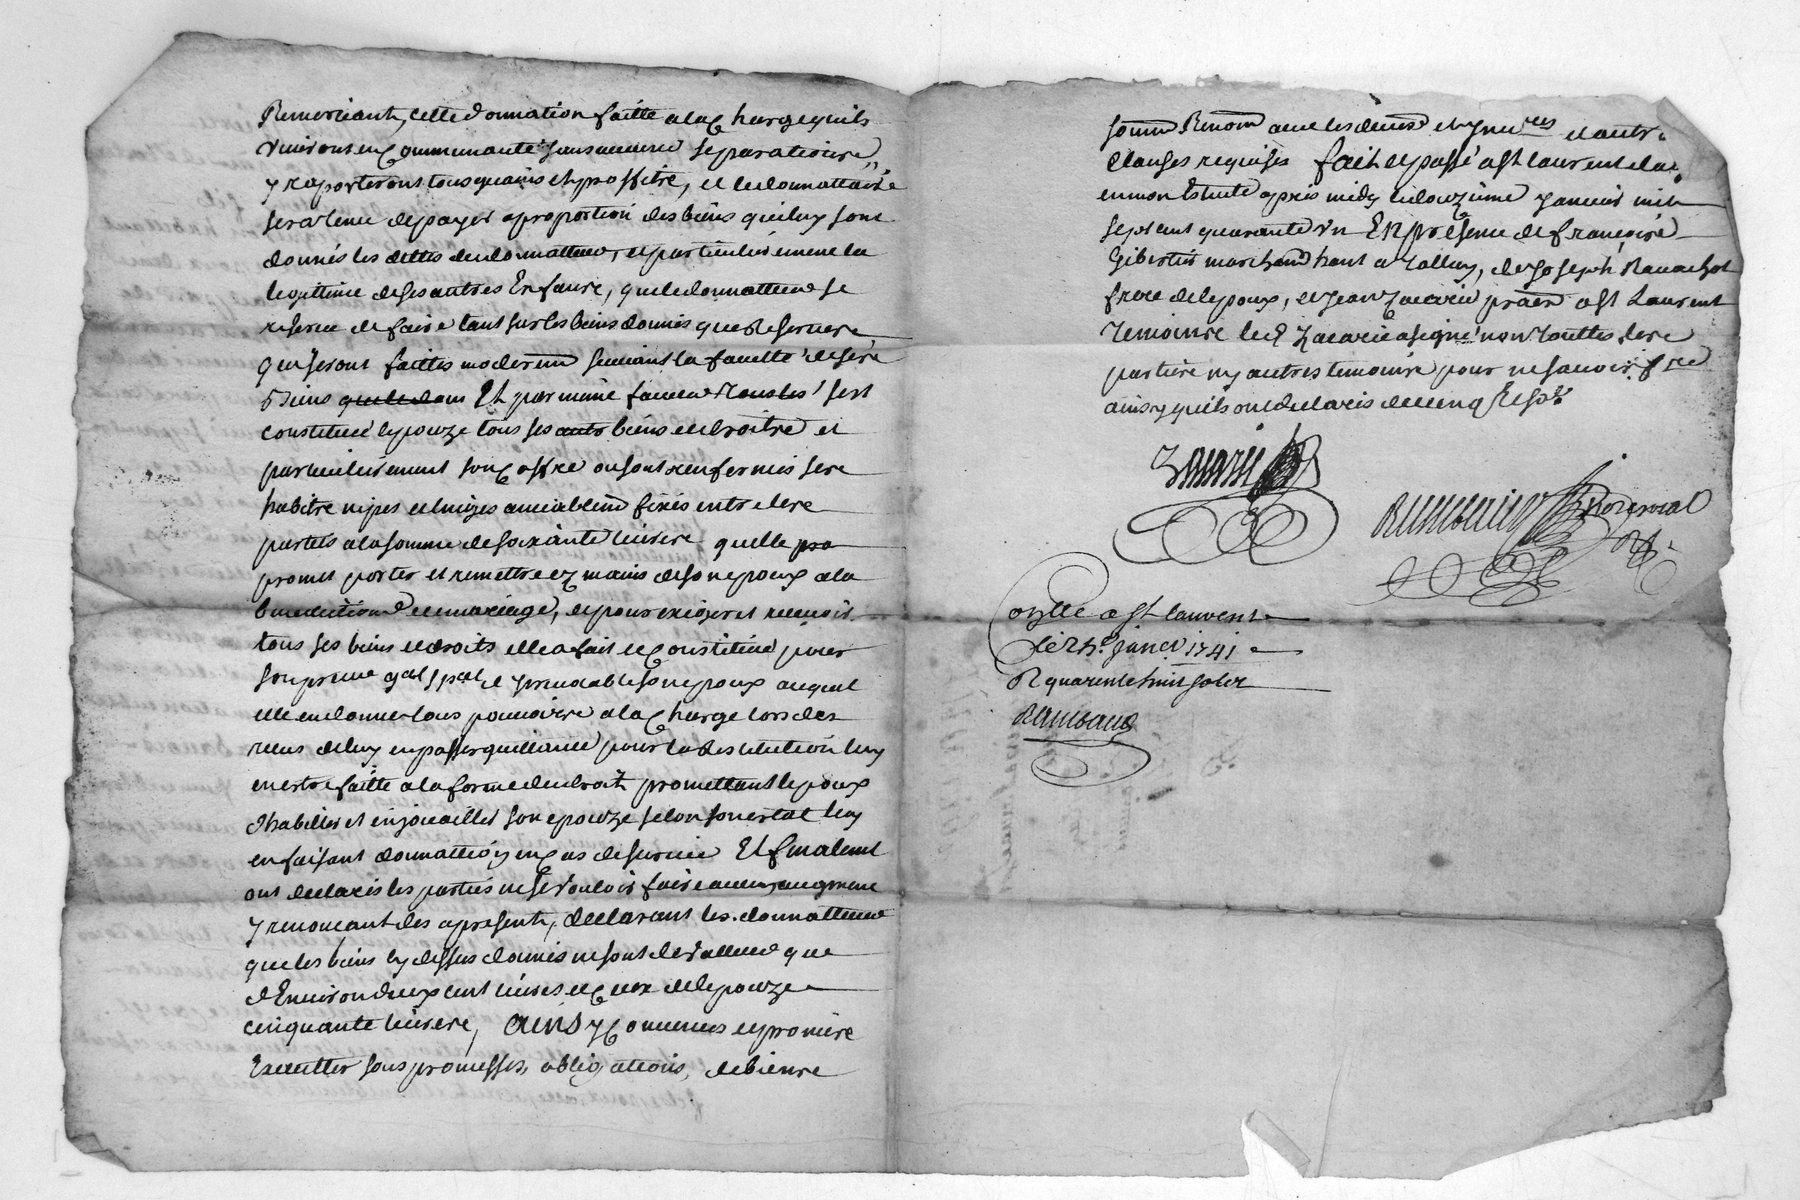 Remerciants, cette donnation faitte a la charge quils
vivront en Communauté sans aucune separation
y raporteront tous gains et proffits, et le donnattaire
sera tenu de payer a proportion des biens qui luy sont
donnés les dettes du donnatteur, et particulierement la
legittime de ses autres Enfants, que le donnatteur se
reserve de faire tant sur les biens donnés que Reservés
qui seront faittes moderem suivant la faculté de ses
Biens que le dons Et par même faveur sest
constitué lepouze tous ses auts biens et droits et
particulierement son Coffre ou sont renfermés ses
habits nipes et linges amiablem fixés entre les
parties a la somme de soixante livres quelle pro
promet porter et remettre ez mains de son epoux a la
benediction du mariage, et pour exiger et recevoir
tous ses biens et droits elle a fait et Constitué pour
son procur gnal spal et irrevocable son epoux auquel
elle en donne tous pouvoirs a la Charge lors des
receus de luy en passer quittance pour la Restitution luy
en estre faitte a la forme du droit promettant lepoux
dhabiller et enjoüailler son epouze selon son estat luy
en faisant donnattion en Cas de survie Et finalemt
ont declarés les parties ne se vouloir faire aucun augment
y renonçant des a present, declarant les donnatteurs
que les biens cy dessus donnés ne sont de valleur que
dEnviron deux cent livres et Ceux de lepouze
cinquante livres, Ainsy Convenus et promis
Executter sous promesses, obligations, de biens
soumm Renon avec les dues et ires et autr
Clauses requises fait et passé a St Laurent
en mon Estude apres midy le douzieme janvier mil
sept cent quarante un En présence de françois
Gibertier marchand hant a, de Joseph Ravachol
frere de lepoux, et Jean Zacarie a St Laurent
temoins led Zacarie a signé non touttes les
parties ny autres temoins pour ne savoir fre
ainsy quils ont declarés de ce enq Et sor
Zacarie
Rambaud
Conlle a St Laurent
Le janer 1741
R quarente huit sols
Rambaud